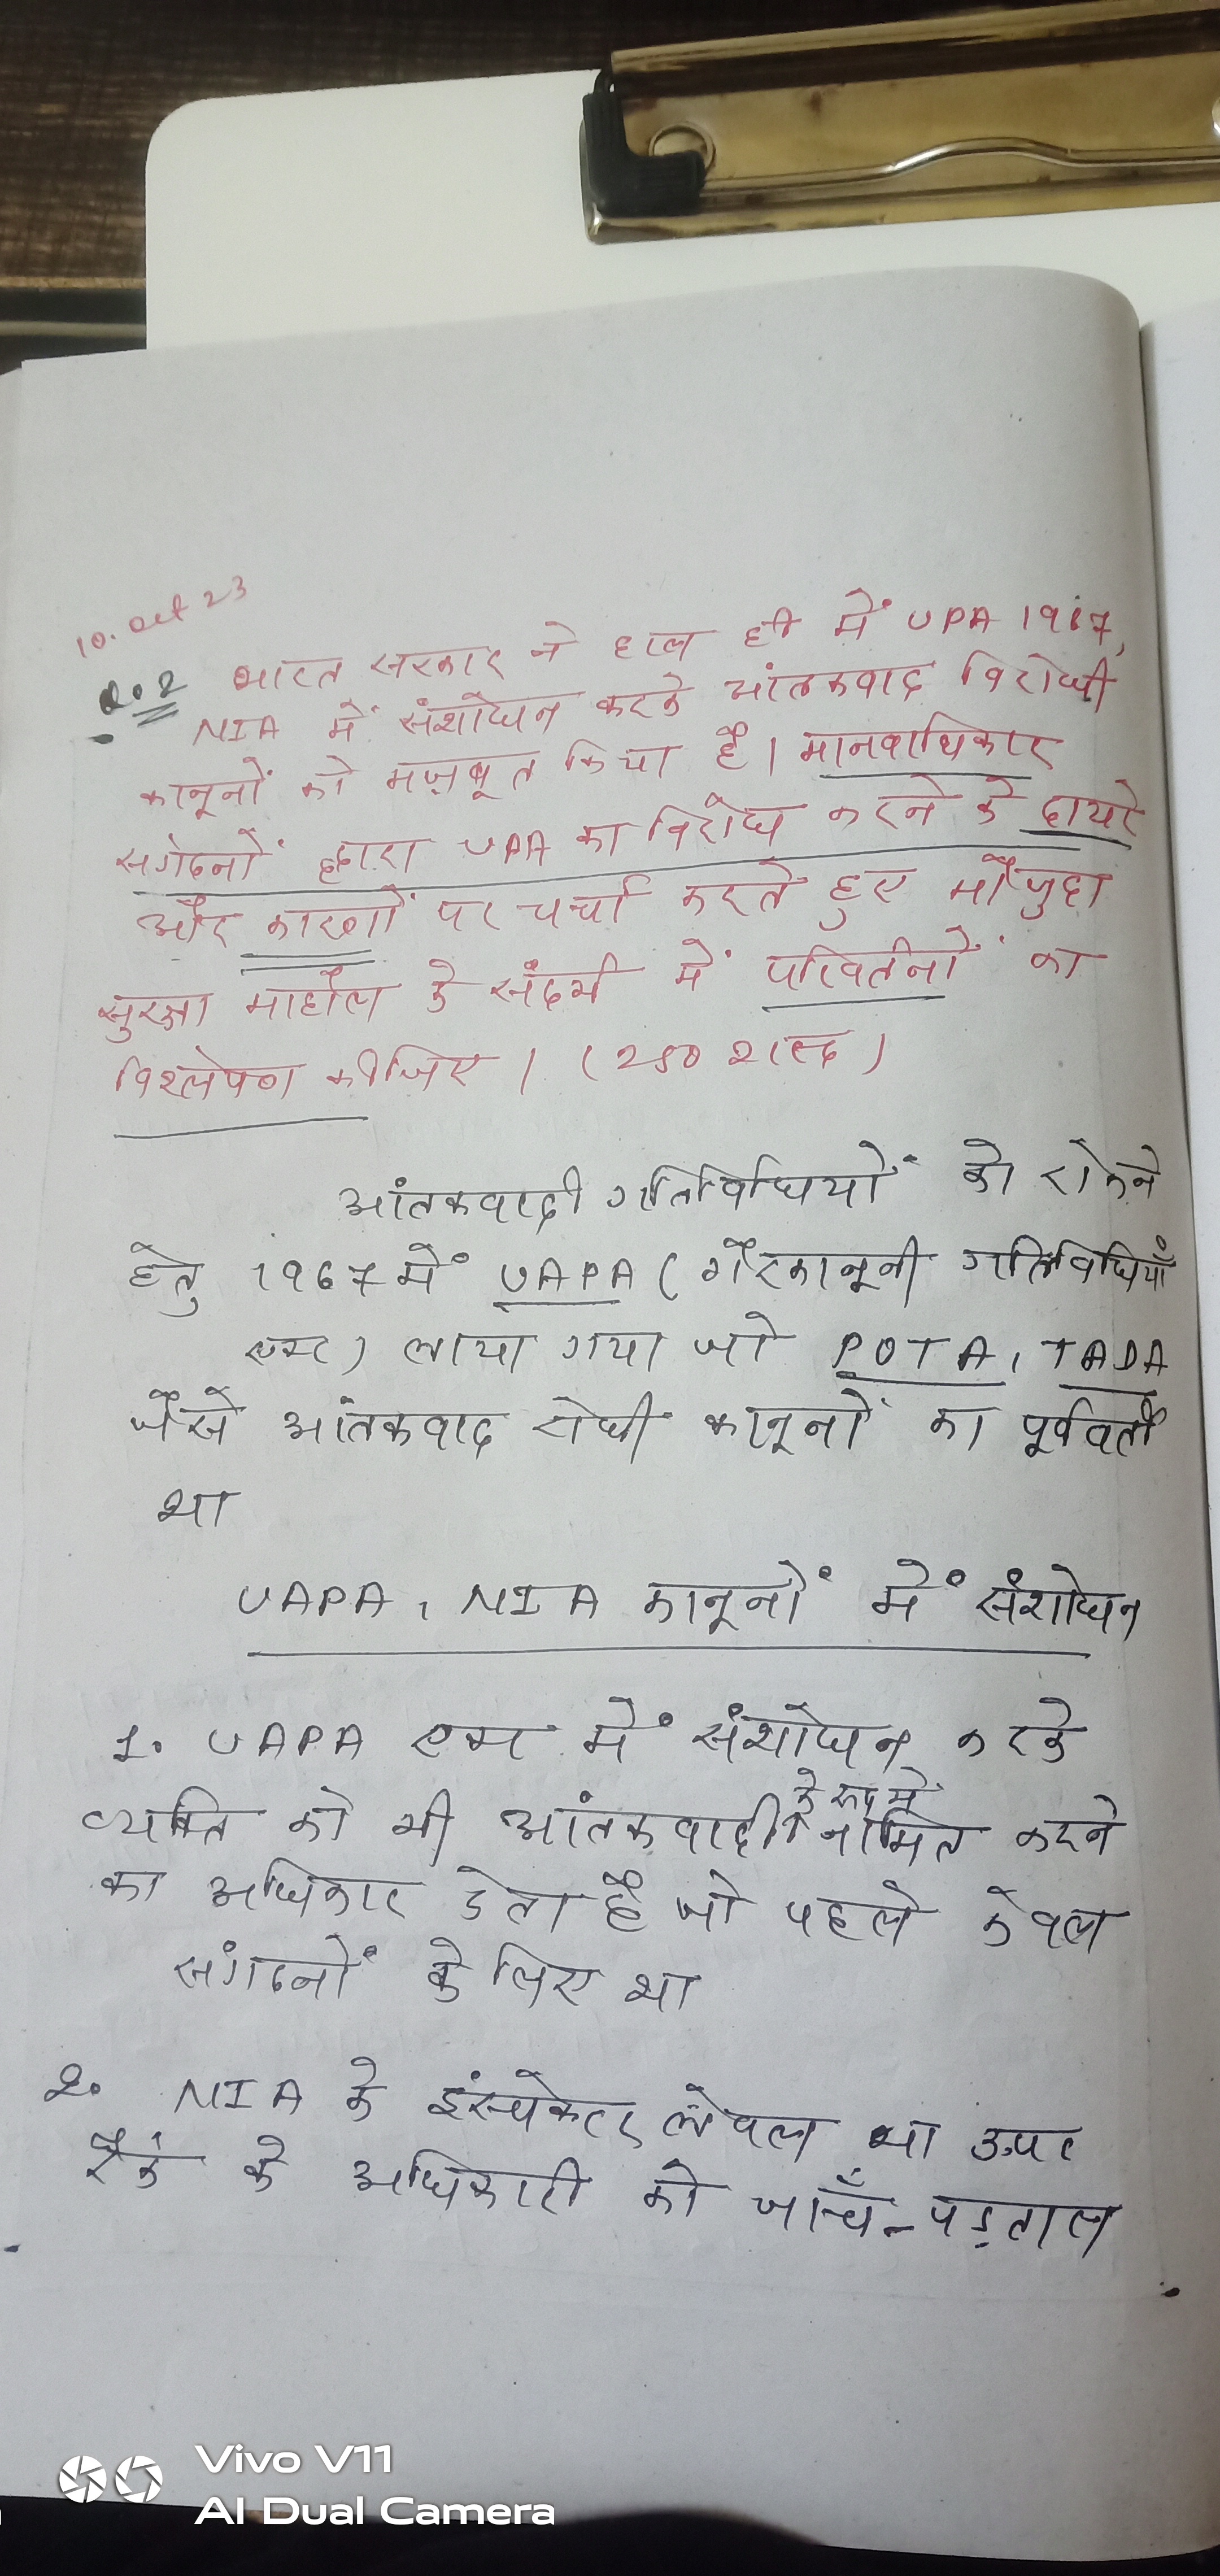 10. Oct 23
Q.2 भारत सरकार ने हाल ही में UPA 1967,
NIA में संशोधन करके आंतकवाद विरोधी
कानूनों को मज़बूत किया है। मानवाधिकार
सगंठनों द्वारा UPA का विरोध करने के दायरे
और कारणों पर चर्चा करते हुए मौजुदा
सुरक्षा माहौल के संदर्भ में परिवर्तनों का
विश्लेषण कीजिए। (250 शब्द)
आंतकवादी गतिविधियों को रोकने
हेतु 1967 में UAPA (गैरकानूनी गतिविधियाँ
एक्ट) लाया गया जो POTA, TADA
जैसे आंतकवाद रोधी कानूनों का पूर्ववर्ती
था
UAPA, NIA कानूनों में संशोधन
1. UAPA एक्ट में संशोधन करके
के रूप में
व्यक्ति को भी आंतकवादी नामित करने
का अधिकार देता है जो पहले केवल
संगठनों के लिए था
2. NIA के इंस्पेकटर लेवल या ऊपर
रैंक के अधिकारी को जाँच-पड़ताल
Vivo V11
AI Dual Camera